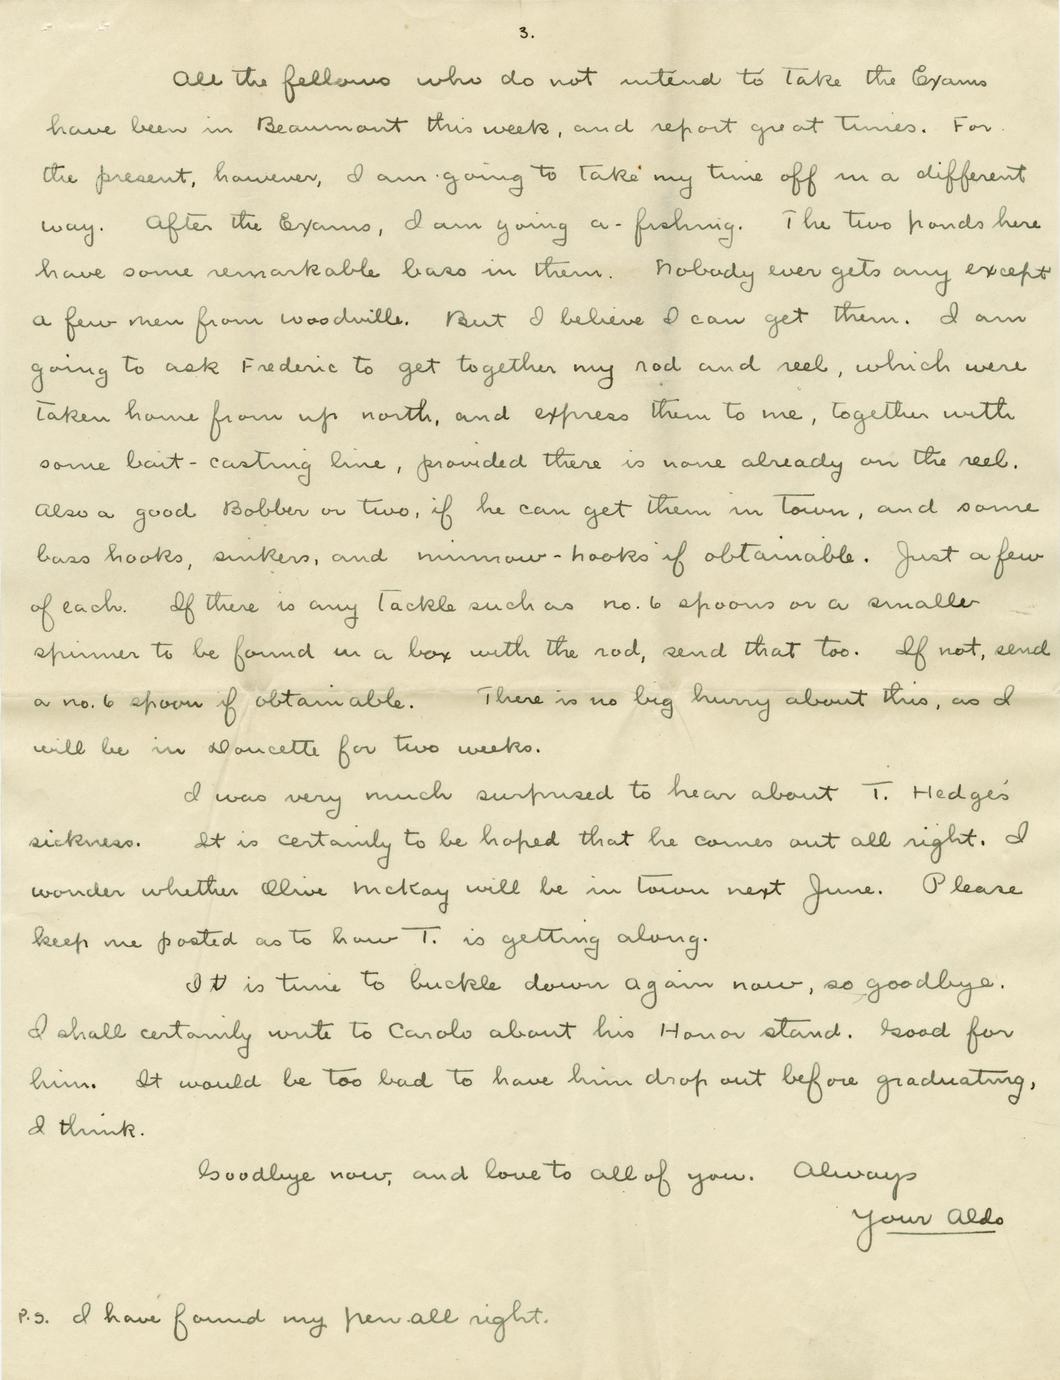 3.
All the fellows who do not intend to take the Exams
have been in Beaumont this week, and report great times. For
the present, however, I am going to take my time off in a different
way. After the Exams, I am going a-fishing. The two ponds here
have some remarkable bass in them. Nobody ever gets any except
a few men from Woodville. But I believe I can get them. I am
going to ask Frederic to get together my rod and reel, which were
taken home from up north, and express them to me, together with
some bait-casting line, provided there is none already on the reel.
Also a good Bobber or two, if he can get them in town, and some
bass hooks, sinkers, and minnow-hooks if obtainable. Just a few
of each. If there is any tackle such as no. 6 spoons or a smaller
spinner to be found in a box with the rod, send that too. If not, send
a no. 6 spoon if obtainable. There is no big hurry about this, as I
will be in Doucette for two weeks.
I was very much surprised to hear about T. Hedge's
sickness. It is certainly to be hoped that he comes out all right. I
wonder whether Olive McKay will be in town next June. Please
keep me posted as to how T. is getting along.
It is time to buckle down again now, so goodbye.
I shall certainly write to Carolo about his Honor stand. Good for
him. It would be too bad to have him drop out before graduating,
I think.
Goodbye now, and love to all of you. Always
Your Aldo
P.S. I have found my pen all right.